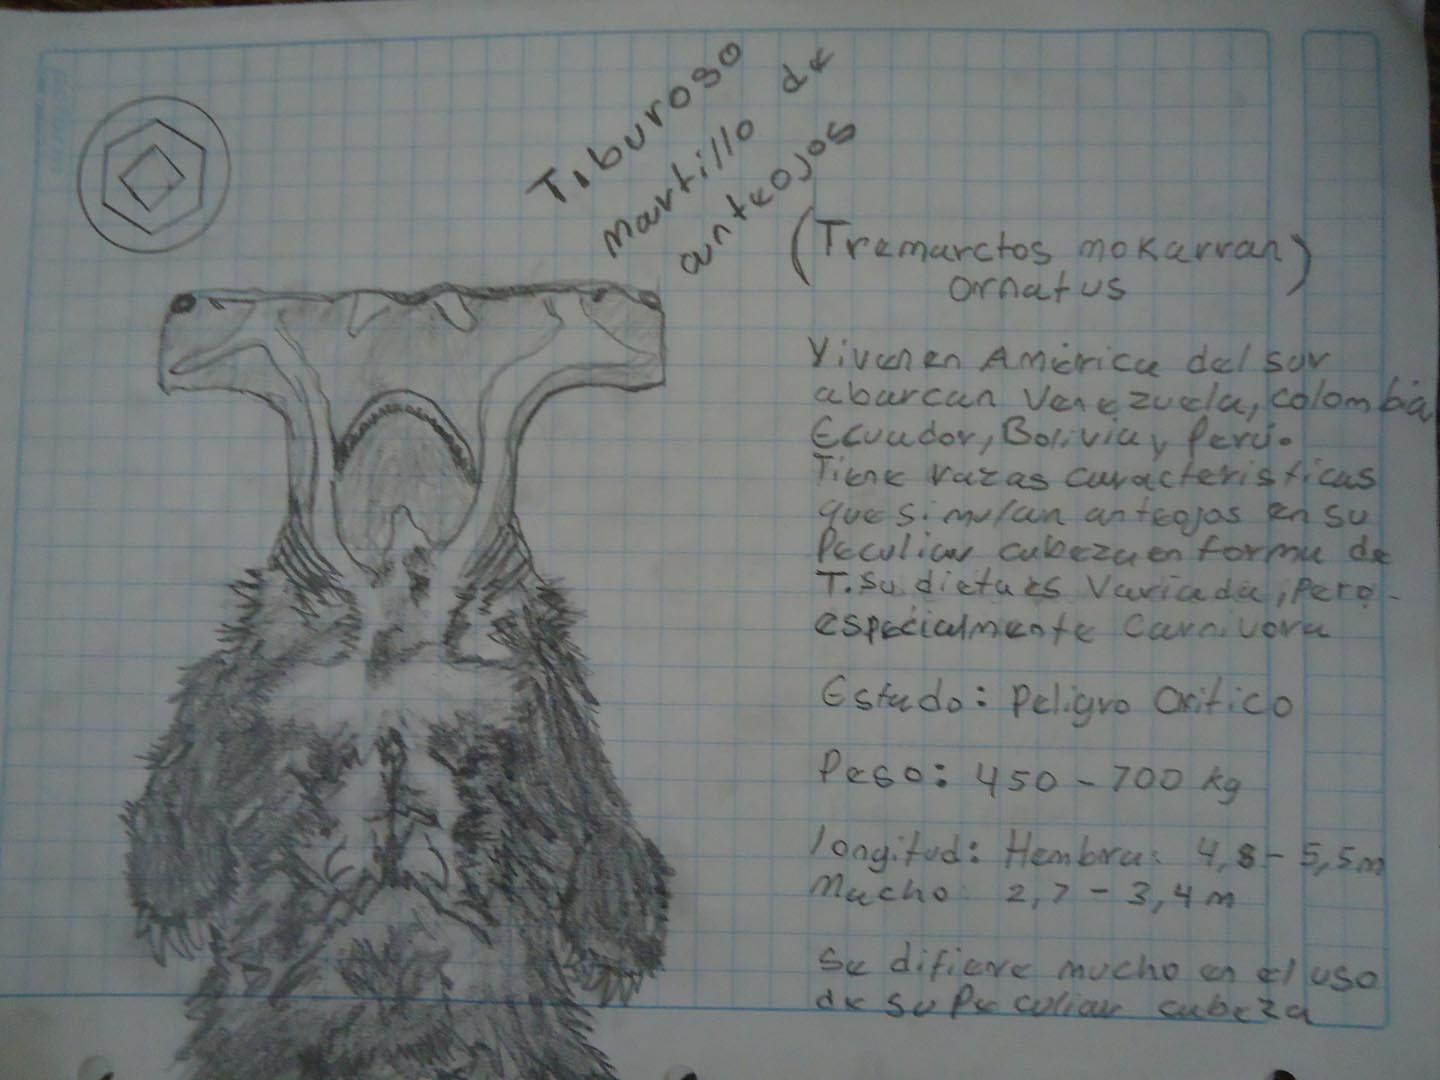 Tiburoso
martillo de
anteojos
(Tremarctos mokarran)
ornatus
Viven en América del sur
abarcan Venezuela, colombia,
Ecuador, Bolivia y Perú.
Tiene razas caracteristicas
que simulan anteojos en su
Peculiar cabeza en forma de
T. Su dieta es Variada, pero
especialmente Carnivora
Estado: Peligro Critico
Peso: 450 - 700 kg
longitud: Hembra: 4,8 - 5,5m
Macho: 2,7 - 3,4 m
Se difiere mucho en el uso
de su Peculiar cabeza